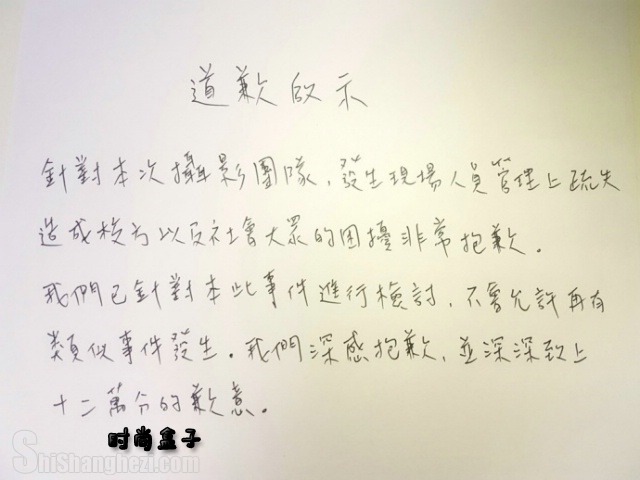 道歉啟示
針對本次攝影團隊，發生現場人員管理上疏失
造成校方以及社會大眾的困擾非常抱歉。
我們已針對本此事件進行檢討，不會允許再有
類似事件發生。我們深感抱歉，並深深致上
十二萬分的歉意。
时尚盒子
ShiShanghezi.com